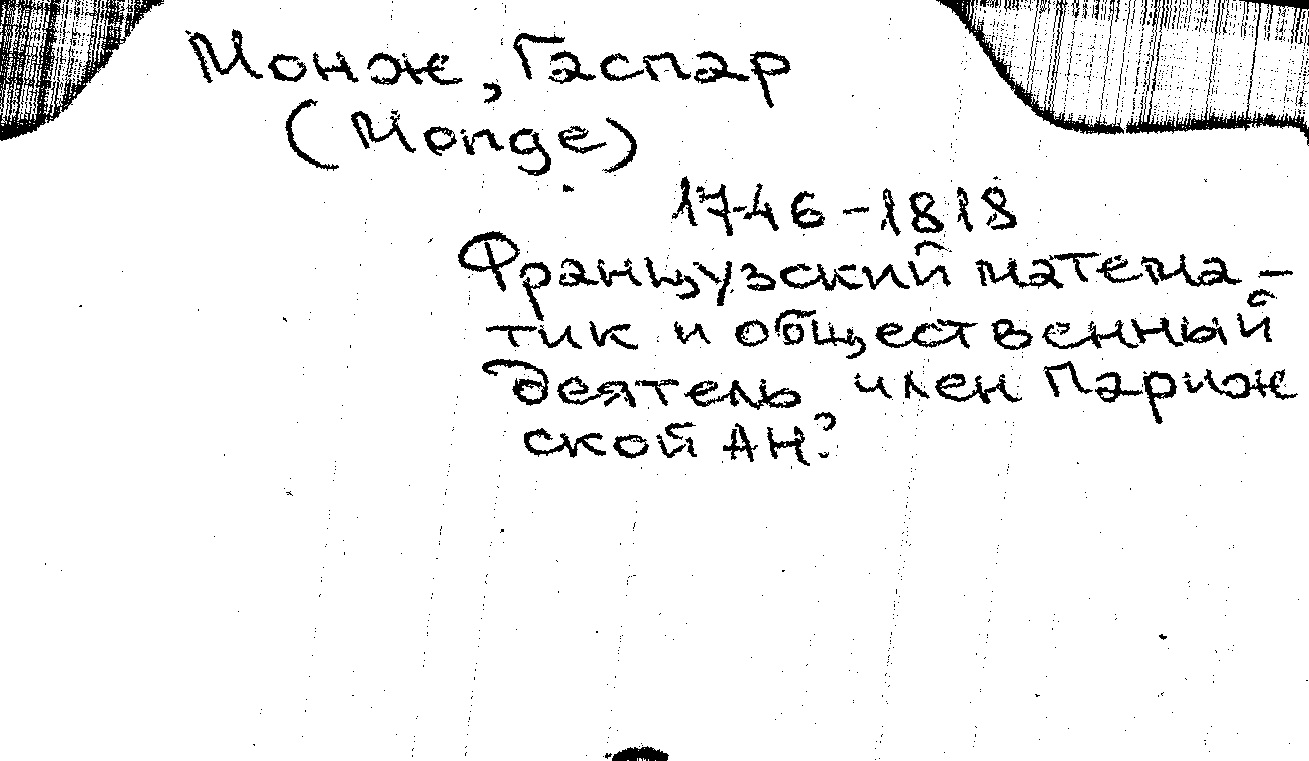 Монж, Гаспар
(Monge)
1746-1818
Французский матема-
тик и общественный
деятель, член Париж
ской АН.